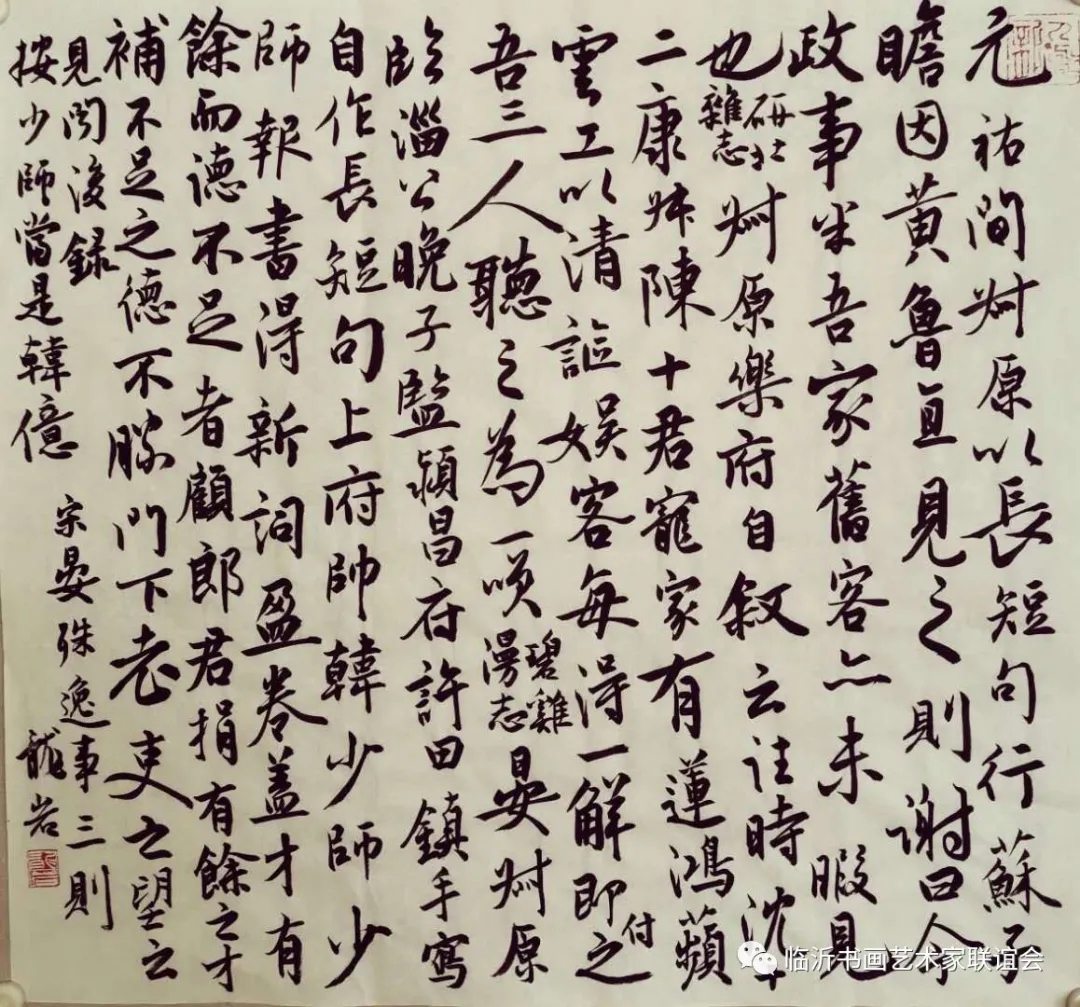 元祐間叔原以長短句行蘇子
瞻因黃魯直見之則謝曰今
政事半吾家舊客亦未暇見
也研北雜志叔原樂府自敘云往時沈十
二康叔陳十君寵家有蓮鴻蘋
雲工以清謳娛客每得一解即付之
吾三人聽之為一笑碧雞漫志晏叔原
臨淄公晚子監潁昌府許田鎮手寫
自作長短句上府帥韓少師少
師報書得新詞盈卷蓋才有
餘而德不足者顧郎君捐有餘之才
補不足之德不勝門下老吏之望云
見聞後錄
按少師當是韓億
宋晏殊逸事三則
龍岩
临沂书画艺术家联谊会